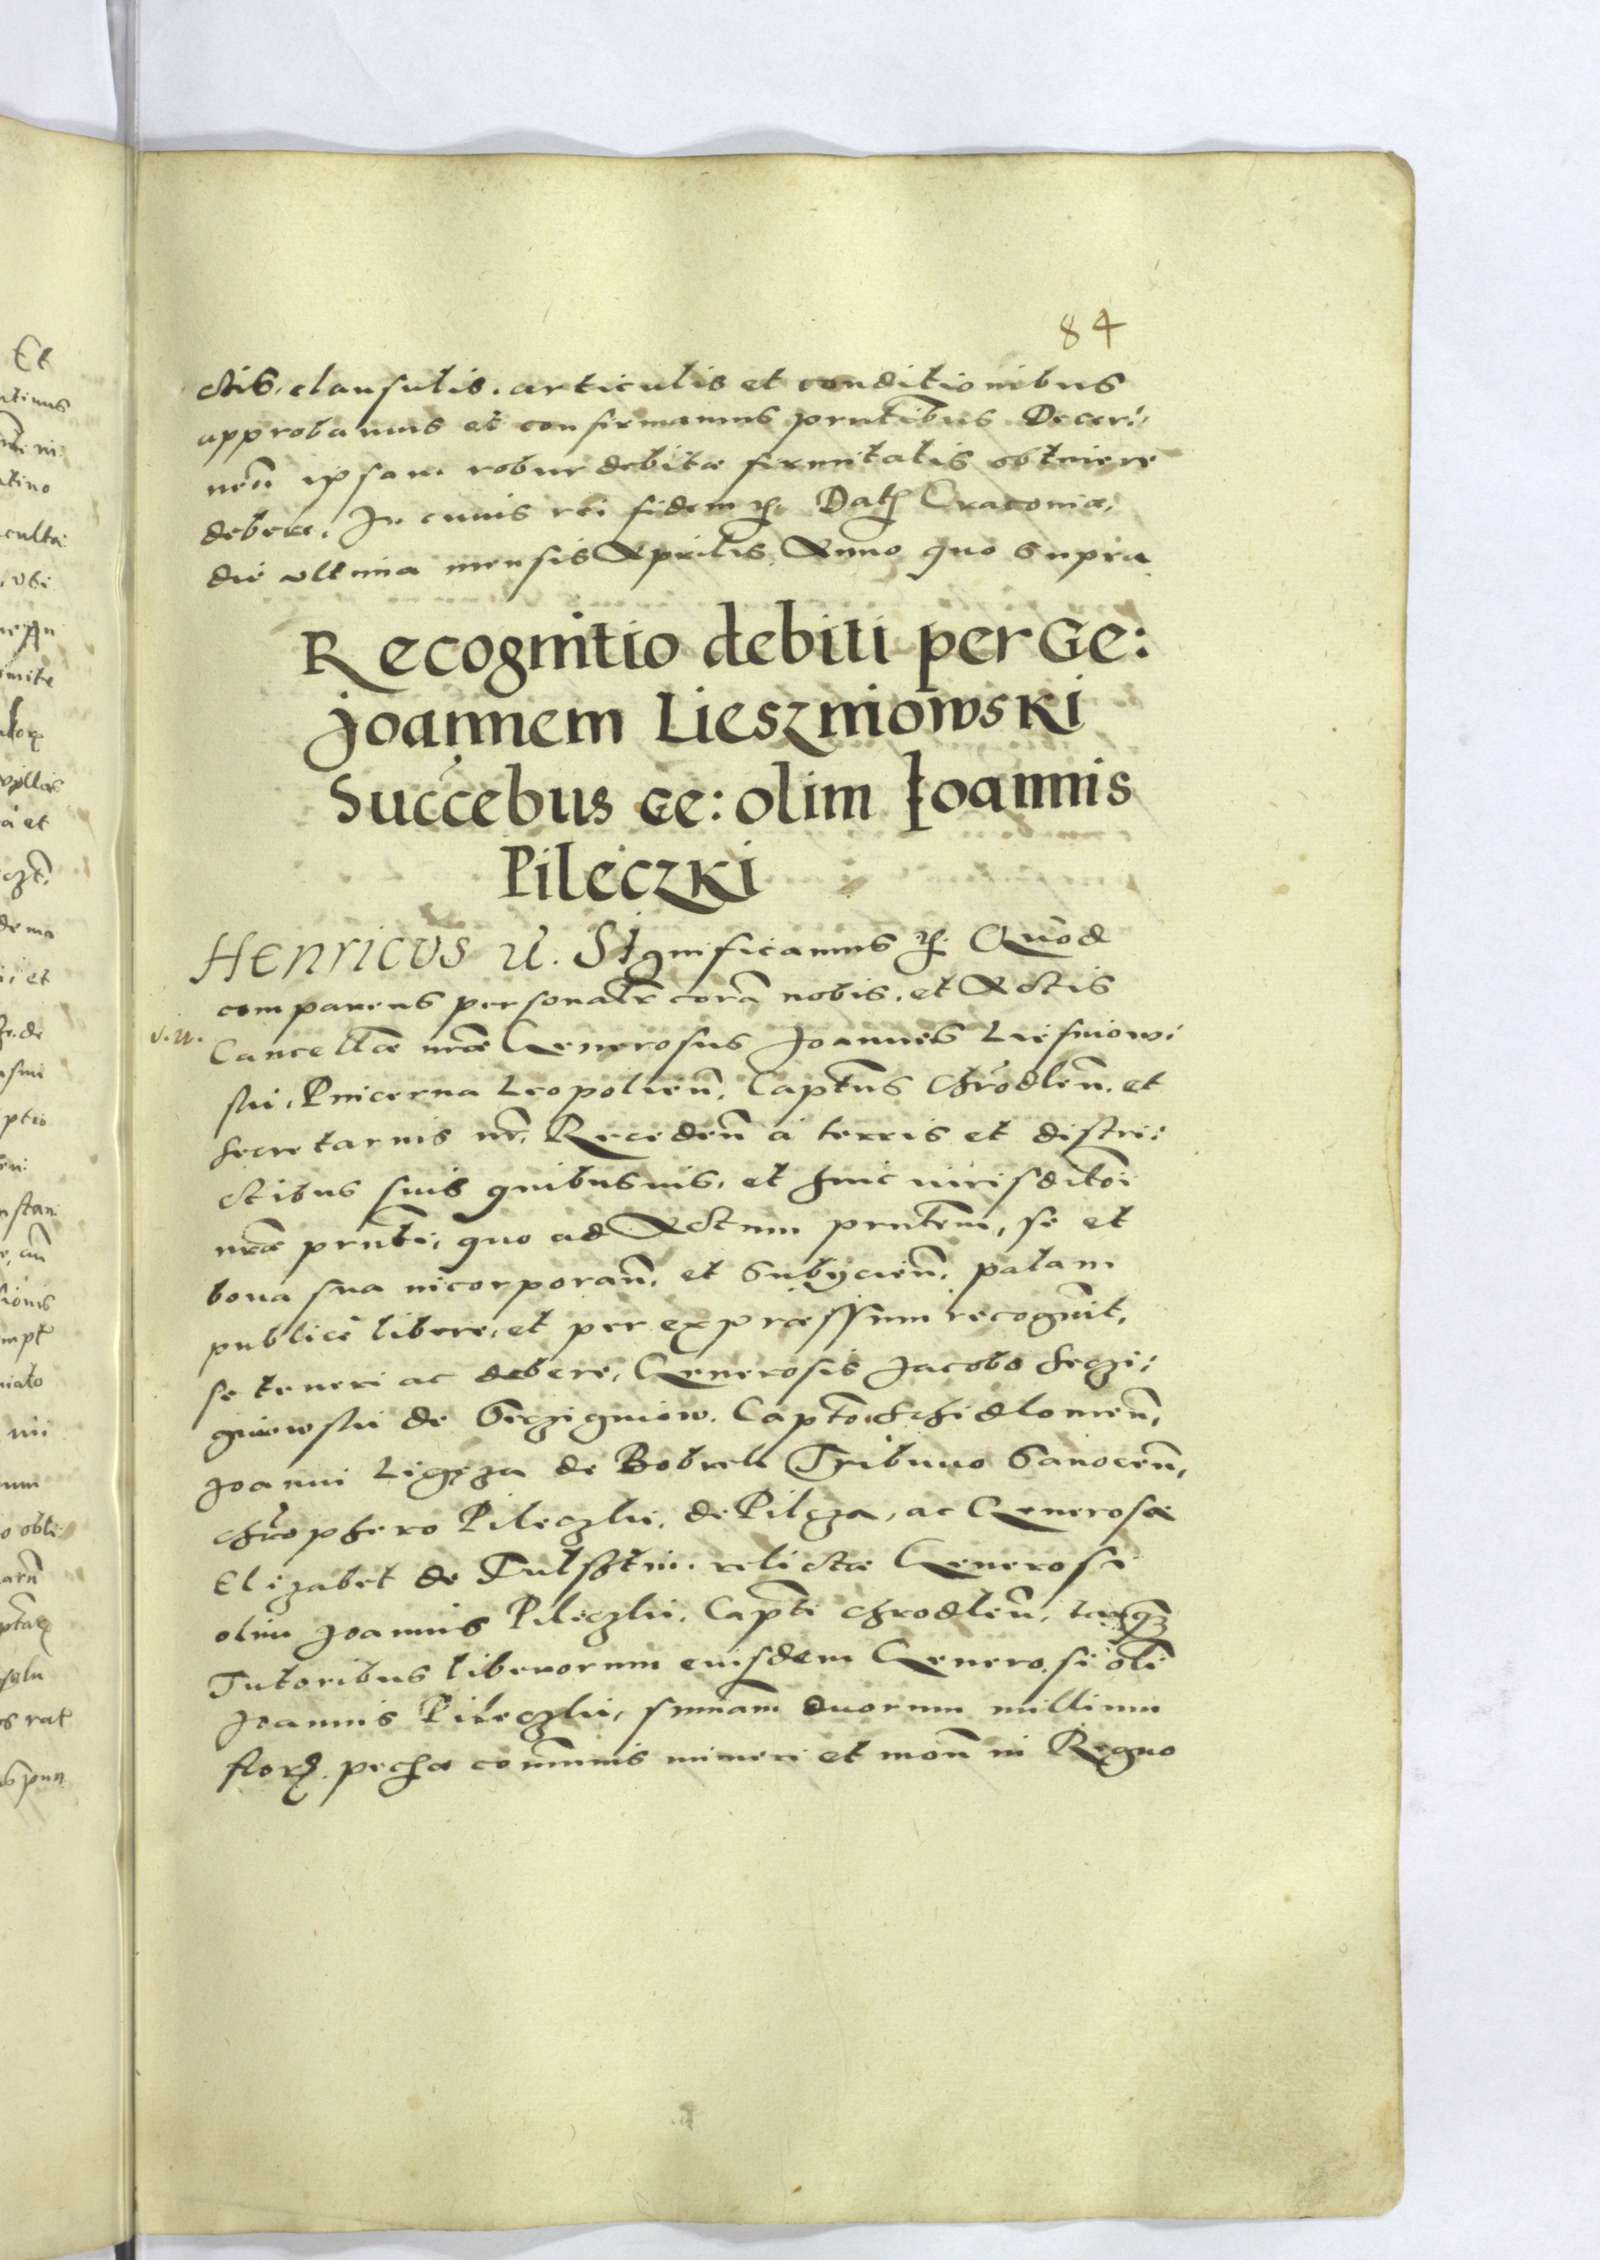 84
ctis, clausulis, articulis et conditionibus
approbamus et confirmamus prntibus. Decer:
nen̄ ipsam robur debitæ firmitatis obtinere
debere. In cuius rei fidem etc. Dat. Cracoviæ,
die ultima mensis Aprilis, Anno quo supra
Recognitio debiti per Ge:
Joannem Lieszniowski
Succcebus Ge: olim Joannis
Pileczki
Henricus etc. Significamus etc. Quod
comparens personalr̄ corā nobis, et Actis
Cancellæ nr̄æ Generosus Joannes Liesniow:
ski, Pincerna Leopolien̄, Captn̄us Chrodlen̄. et
Secretarius nr̄, Receden̄ a terris et distri:
ctibus suis quibusvis, et huic iurisdictōi
nr̄æ prn̄ti, quo ad Actum prntem, se et
bona sua incorporan̄, et subijcien̄, palam
publice libere, et per expræssum recognit,
se teneri ac debere, Generosis Jacobo Seczi:
gniowski de Seczigniow, Capto Schidlovien̄,
Joanni Ligęza de Bobrek Tribuno Sanocen̄,
Chrophero Pileczki, de Pilcza, ac Generosæ
Elizabet de Tulschin, relictæ Generosi
olim Joannis Pileczki, Capti Chrodlen̄, tanq̄
Tutoribus liberorum eiusdem Generosi oli
Joannis Pileczki, summam duorum millium
flor. pechæ cōmunis numeri et mon̄ in Regno